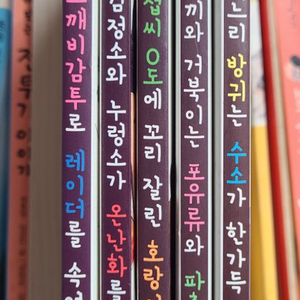 깨비감투로 레이더를 속
감정소와 누렁소가 온난화를
섭씨 0도에 꼬리 잘린 호랑
끼와 거북이는 포유류와 파
느리 방귀는 수소가 한가득